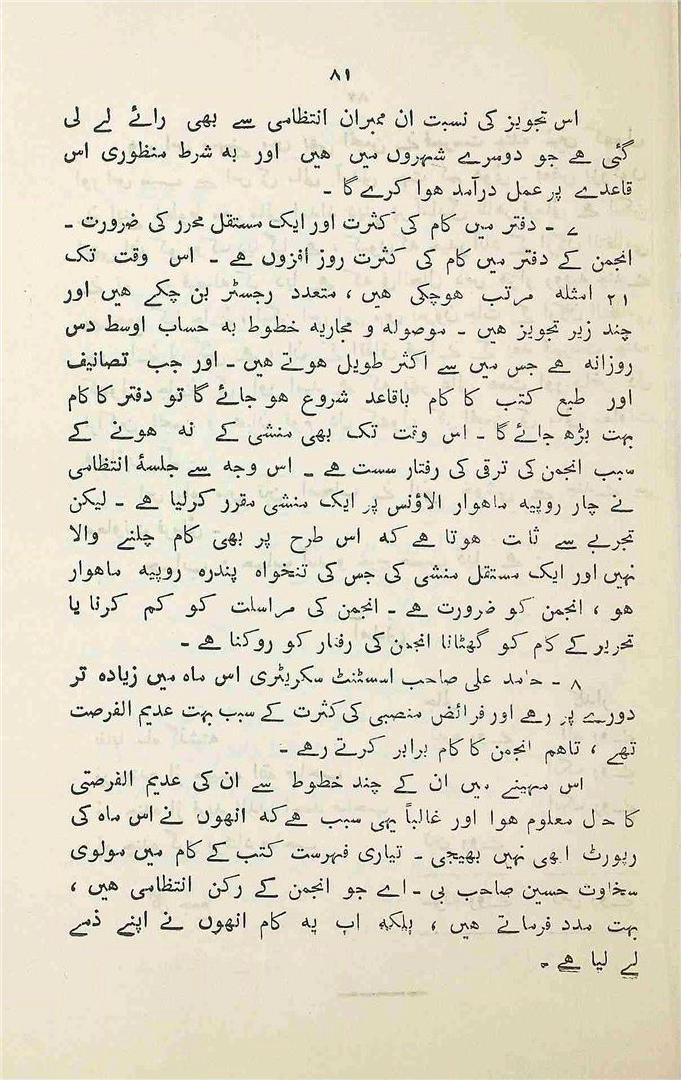 ۸۱
اس تجویز کی نسبت ان ممبران انتظامی سے بھی رائے لے لی
گئی ہے جو دوسرے شہروں میں ہیں اور بہ شرط منظوری اس
قاعدے پر عمل درآمد ہوا کرے گا ۔
۷ ۔ دفتر میں کام کی کثرت اور ایک مستقل محرر کی ضرورت ۔
انجمن کے دفتر میں کام کی کثرت روز افزوں ہے ۔ اس وقت تک
۲۱ امثلہ مرتب ہوچکی ہیں ، متعدد رجسٹر بن چکے ہیں اور
چند زیر تجویز ہیں ۔ موصولہ و مجاریہ خطوط بہ حساب اوسط دس
روزانہ ہے جس میں سے اکثر طویل ہوتے ہیں ۔ اور جب تصانیف
اور طبع کتب کا کام باقاعد شروع ہو جائے گا تو دفتر کا کام
بہت بڑھ جائے گا ۔ اس وقت تک بھی منشی کے نہ ہونے کے
سبب انجمن کی ترقی کی رفتار سست ہے ۔ اس وجہ سے جلسۂ انتظامی
نے چار روپیہ ماہوار الاؤنس پر ایک منشی مقرر کرلیا ہے ۔ لیکن
تجربے سے ثابت ہوتا ہے کہ اس طرح پر بھی کام چلنے والا
نہیں اور ایک مستقل منشی کی جس کی تنخواہ پندرہ روپیہ ماہوار
ہو ، انجمن کو ضرورت ہے ۔ انجمن کی مراسلت کو کم کرنا یا
تحریر کے کام کو گھٹانا انجمن کی رفتار کو روکنا ہے ۔
۸ ۔ حامد علی صاحب اسسٹنٹ سکریٹری اس ماہ میں زیادہ تر
دورے پر رہے اور فرائض منصبی کی کثرت کے سبب بہت عدیم الفرصت
تھے ، تاہم انجمن کا کام برابر کرتے رہے ۔
اس مہینے میں ان کے چند خطوط سے ان کی عدیم الفرصتی
کا حال معلوم ہوا اور غالباً یہی سبب ہے کہ انھوں نے اس ماہ کی
رپورٹ ابھی نہیں بھیجی ۔ تیاری فہرست کتب کے کام میں مولوی
سخاوت حسین صاحب بی ۔ اے جو انجمن کے رکن انتظامی ہیں ،
بہت مدد فرماتے ہیں ، بلکہ اب یہ کام انھوں نے اپنے ذمے
لے لیا ہے ۔